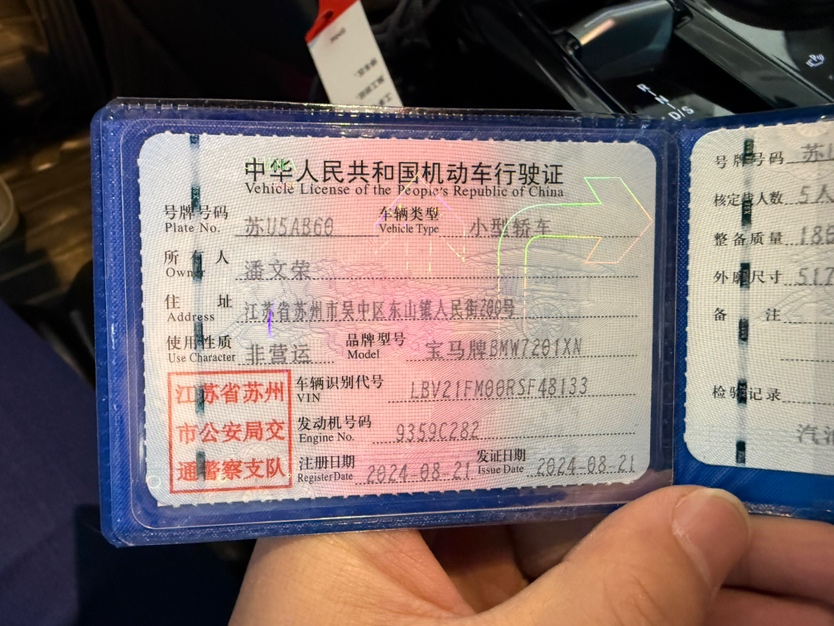 中华人民共和国机动车行驶证
Vehicle License of the People's Republic of China
号牌号码 Plate No. 苏U5AB60 车辆类型 Vehicle Type 小型轿车
所有人 Owner 潘文荣
住址 Address 江苏省苏州市吴中区东山镇人民街200号
使用性质 Use Character 非营运 品牌型号 Model 宝马牌BMW7201XN
车辆识别代号 VIN LBV21FM00RSF48133
发动机号码 Engine No. 9359C282
注册日期 Register Date 2024-08-21 发证日期 Issue Date 2024-08-21
江苏省苏州
市公安局交
通警察支队
号牌号码 苏
核定载人数 5人
整备质量 186
外廓尺寸 517
备注
检验记录
汽油
R
N
D/S